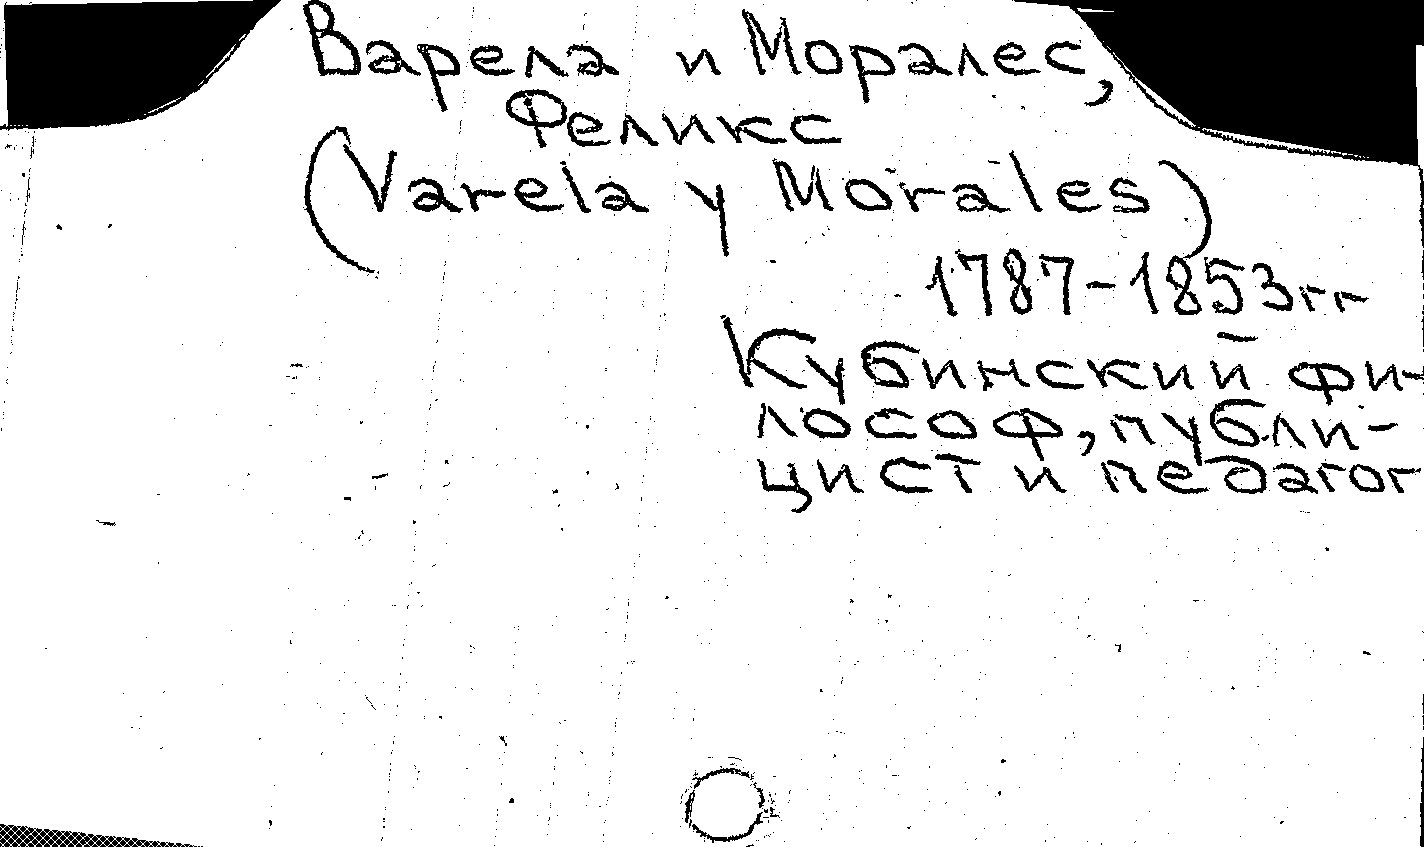 Варела и Моралес,
Феликс
(Varela y Morales)
1787-1853гг
Кубинский фи-
лософ, публи-
цист и педагог